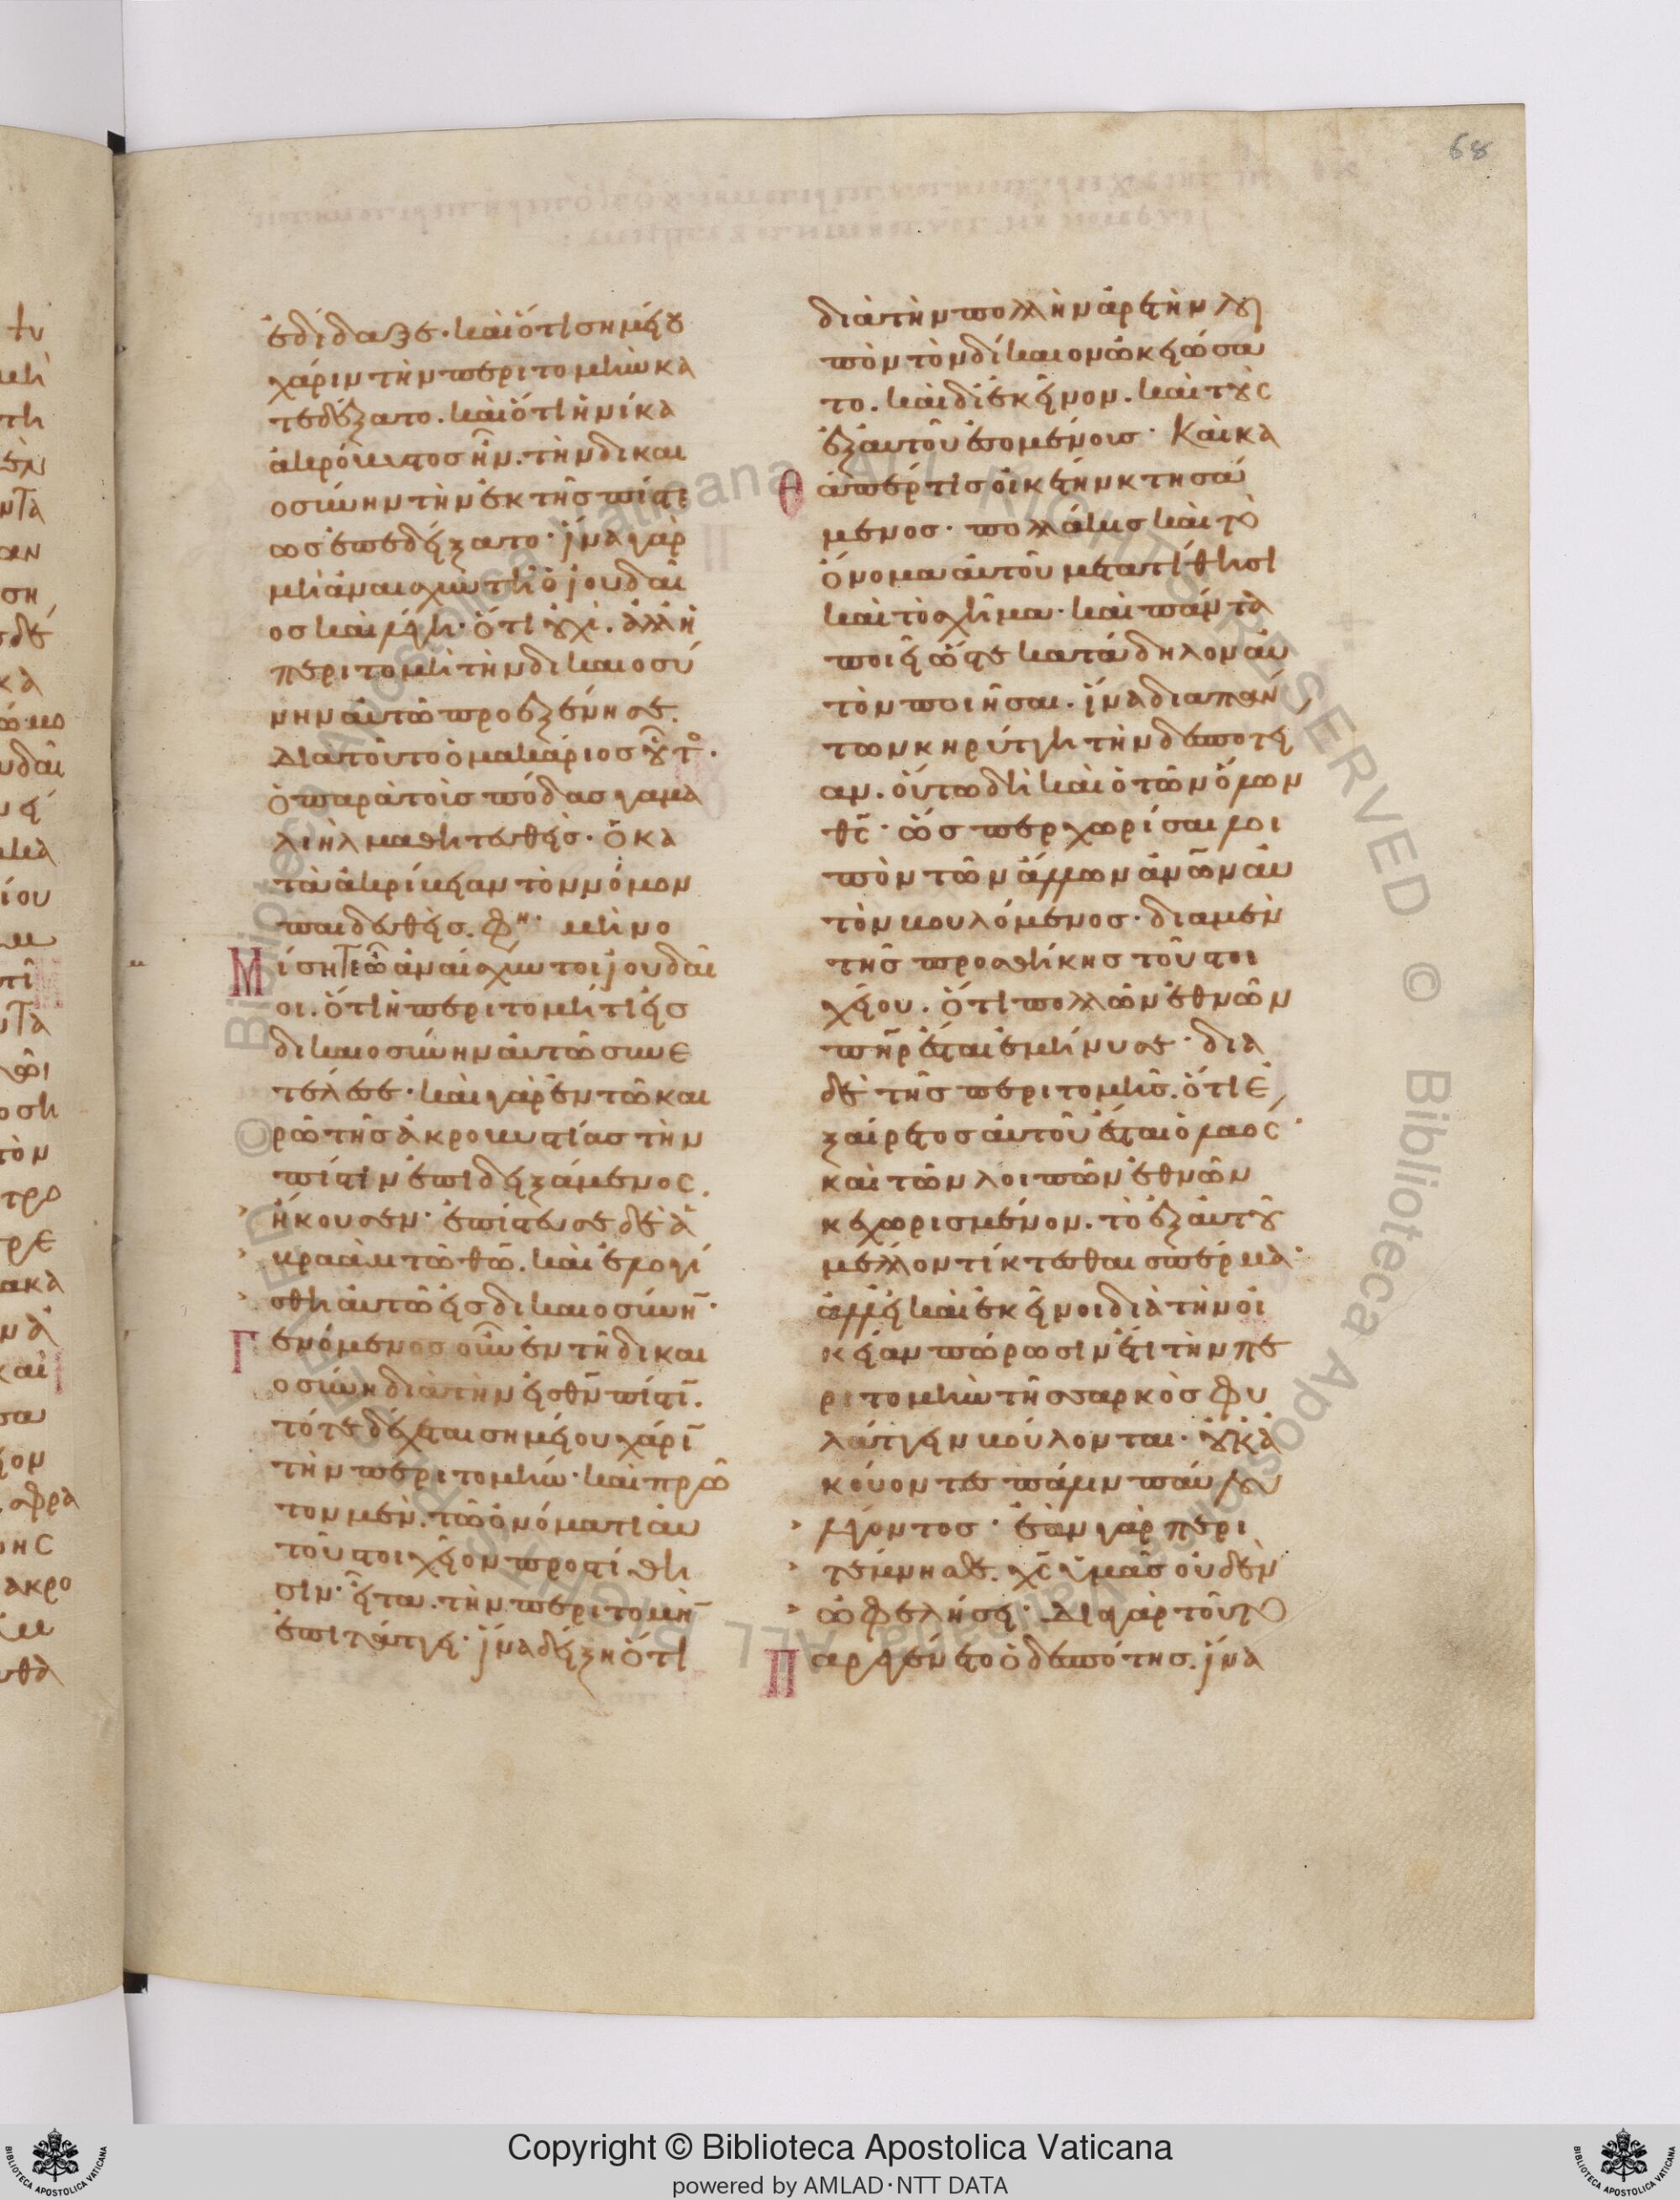 68
ἐδίδαξε· καὶ ὅτι σημείου
χάριν τὴν περιτομὴν κα
τεδέξατο. καὶ ὅτι ἡνίκα
ἀκρόβυστος ἦν. τὴν δικαι
οσύνην τὴν ἐκ τῆς πίστε
ως ἐπεδείξατο· ἵνα γὰρ
μὴ ἀναισχυντῆ ὁ ἰουδαῖ
ος καὶ λέγη· ὅτι οὐχὶ. ἀλλ' ἡ
περιτομὴ τὴν δικαιοσύ
νην αὐτῶ προεξένησε.
Διὰ τοῦτο ὁ μακάριος οὗτος·
ὁ παρὰ τοῖς πόδας γαμα
λιὴλ μαθητευθεὶς· ὁ κα
τὰ ἀκρίβειαν τὸν νόμον
παιδευθεὶς. φην· μὴ νο
Μίσητε ὦ ἀναίσχυντοι ἰουδαῖ
οι. ὅτι ἡ περιτομή τι εἰς
δικαιοσύνην αὐτῶ συνε
τέλεσε· καὶ γὰρ ἐν τῶ και
ρῶ τῆς ἀκροβυστίας τὴν
πίστιν ἐπιδειξάμενος.
ἤκουσεν· ἐπίστευσε δὲ ἀ
βραὰμ τῶ θω. καὶ ἐλογί
σθη αὐτῶ εἰς δικαιοσύνην·
Γενόμενος οὖν ἐν τῆ δικαι
οσύνη διὰ τὴν εἰς θν πίστιν.
τότε δέχεται σημείου χάριν
τὴν περιτομήν· καὶ πρῶ
τον μὲν. τῶ ὀνόματι αὐ
τοῦ στοιχεῖον προστίθη
σιν· εἶτα. τὴν περιτομὴν
ἐπιτάττει· ἵνα δείξη ὅτι
διὰ τὴν πολλὴν ἀρετὴν λοι
πὸν τὸν δίκαιον ὠκειώσα
το. καὶ δι' ἐκεῖνον. καὶ τοὺς
ἐξ αὐτοῦ ἐσομένους· Καὶ κα
θάπερ τις οἰκέτην κτησά
μενος· πολλάκις καὶ τὸ
ὄνομα αὐτοῦ μετατίθησι
καὶ τὸ σχῆμα· καὶ πάντα
ποιεῖ ὥστε κατάδηλον αὐ
τὸν ποιῆσαι. ἵνα διὰ πάν
των κηρύττη τὴν δεσποτεί
αν. οὕτω δὴ καὶ ὁ τῶν ὅλων
θς· ὥσπερ χωρίσαι λοι
πὸν τῶν ἄλλων ἀνων αὐ
τὸν βουλόμενος· διὰ μὲν
τῆς προσθήκης τοῦ στοι
χείου. ὅτι πολλῶν ἐθνῶν
πηρ ἔσται ἐμήνυσε· διὰ
δὲ τῆς περιτομῆς. ὅτι ἐ
ξαίρετος αὐτοῦ ἔσται ὁ λαὸς·
καὶ τῶν λοιπῶν ἐθνῶν
κεχωρισμένον. τὸ ἐξ αὐτοῦ
μέλλον τίκτεσθαι σπέρμα·
ἀλλ' εἰ καὶ ἐκεῖνοι διὰ τὴν οἰ
κείαν πώρωσιν ἔτι τὴν πε
ριτομὴν τῆς σαρκὸς φυ
λάττειν βούλονται· οὐκ ἀ
κούοντες πάλιν παύλου
λέγοντος· ἐὰν γὰρ περι
τέμνησθε. χς ὑμᾶς οὐδὲν
ὠφελήσει· Διὰ γὰρ τοῦτο
Παρεγένετο ὁ δεσπότης. ἵνα
Copyright © Biblioteca Apostolica Vaticana
powered by AMLAD·NTT DATA